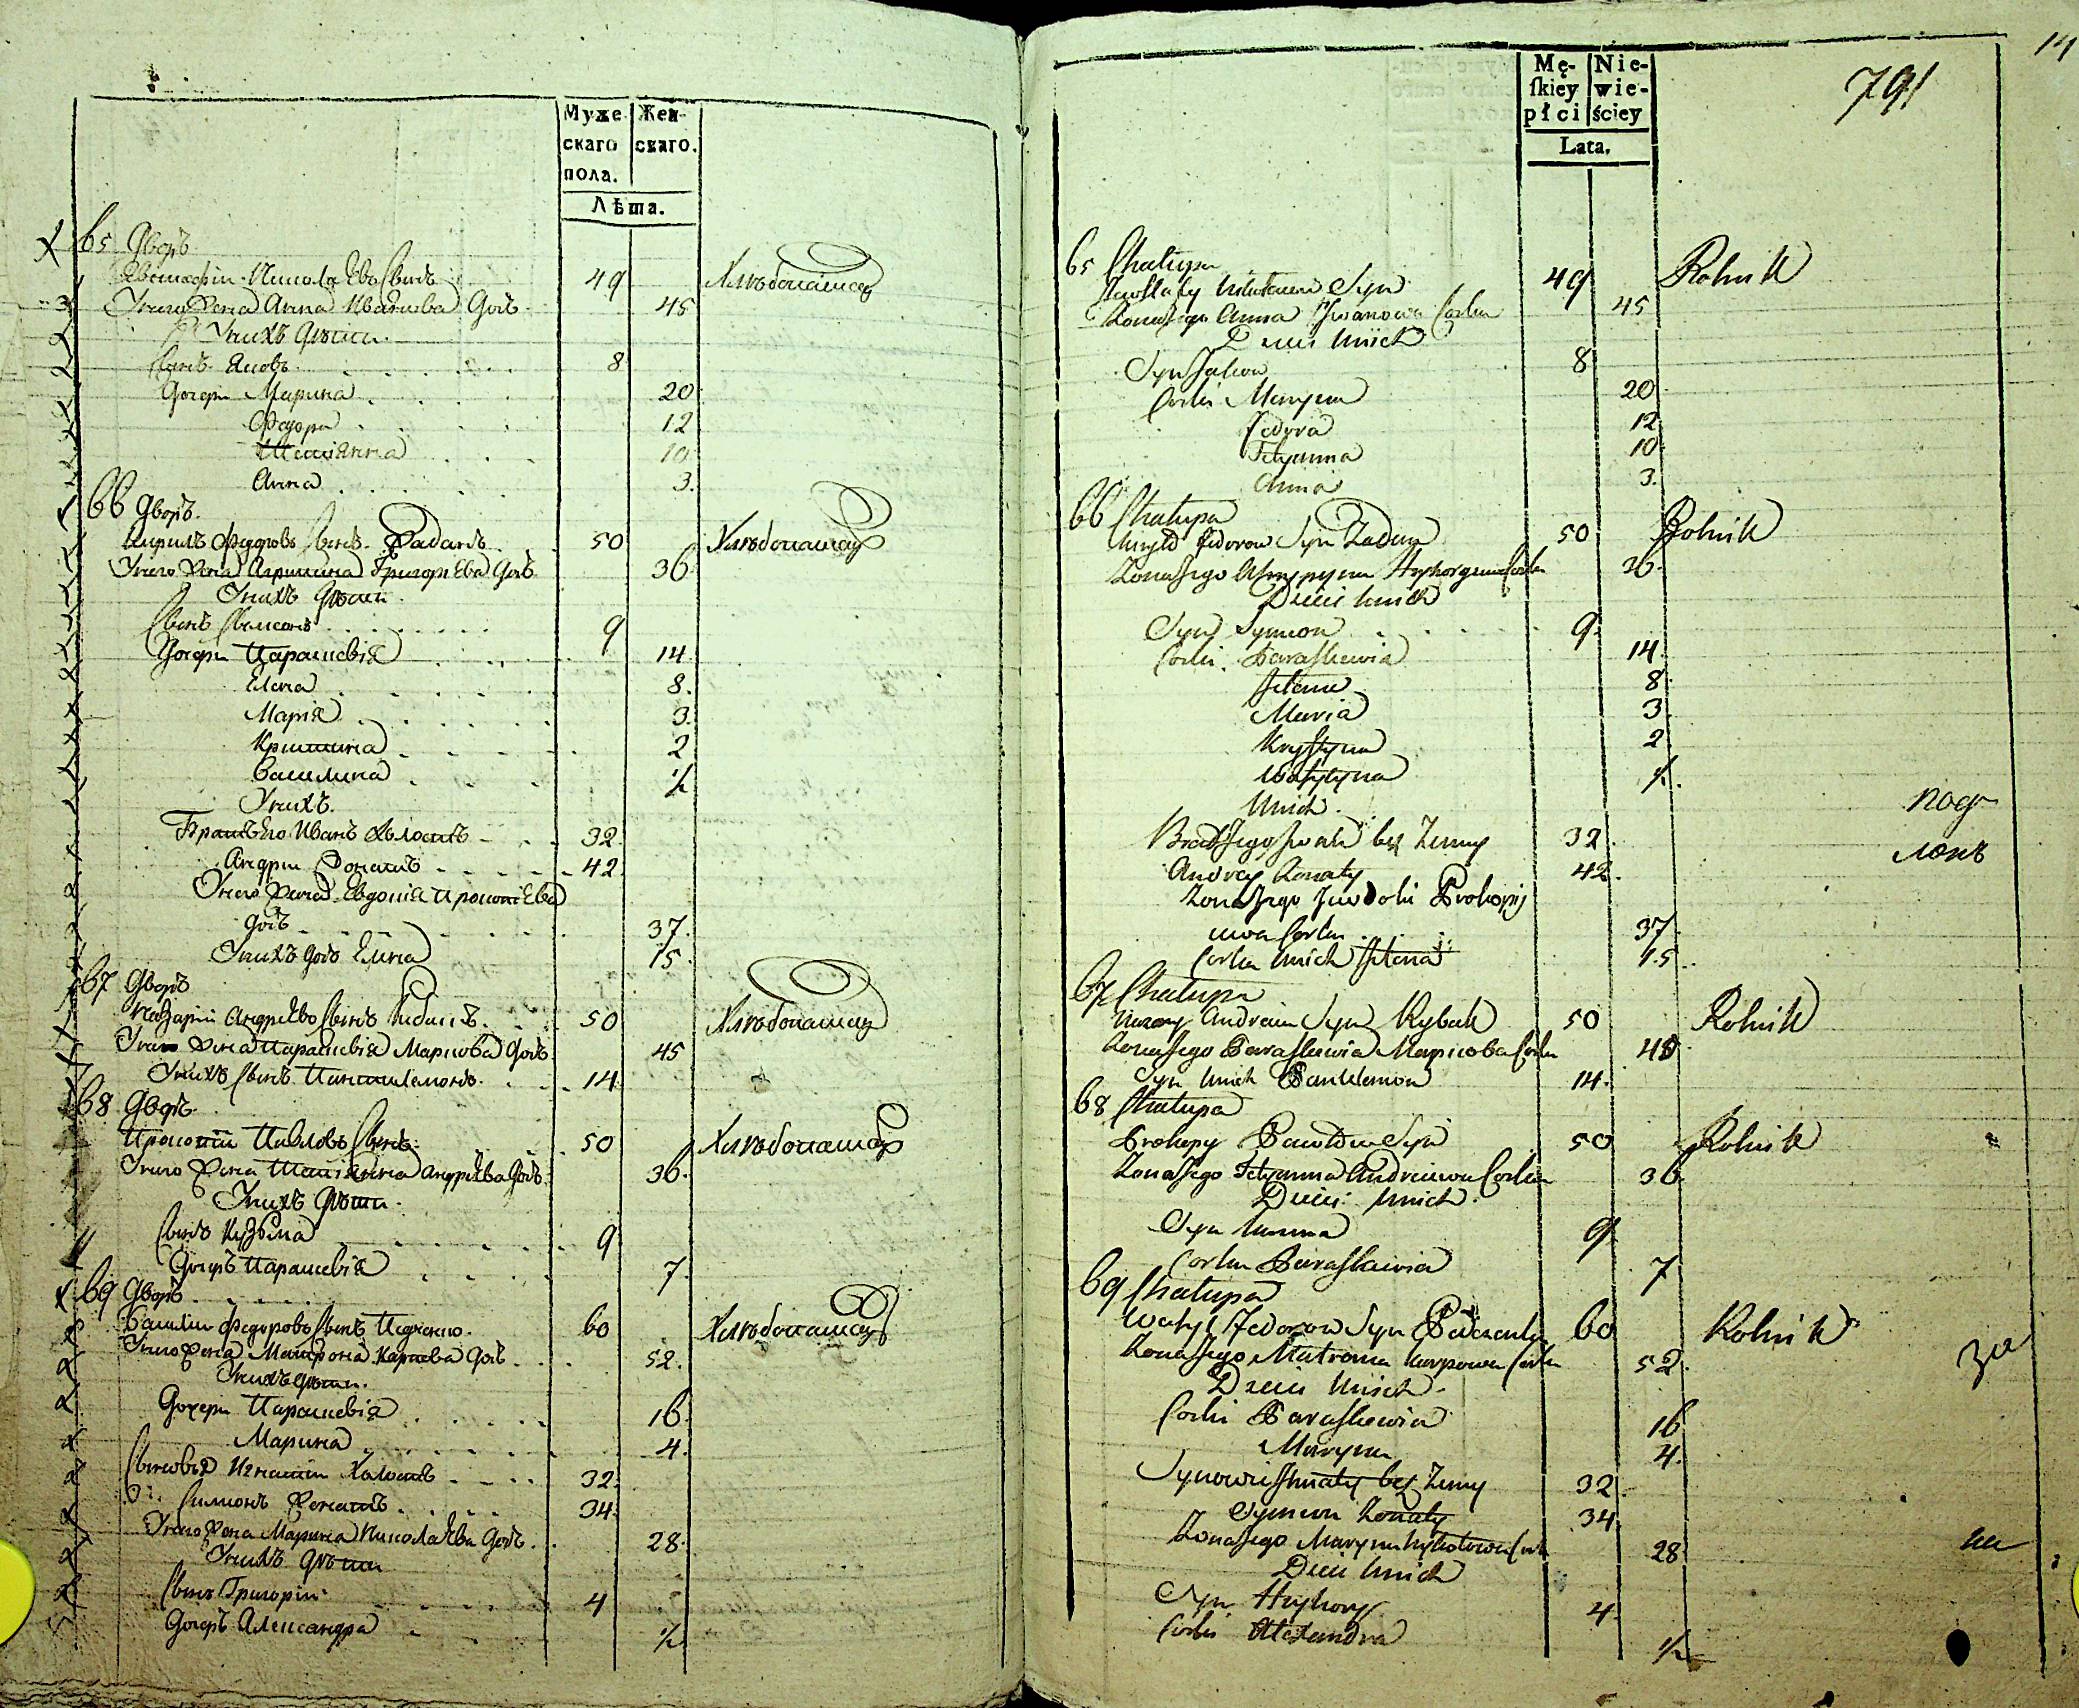 Муже-
скаго
пола.
Жен-
скаго.
Лѣта.
65 Дворъ
Евстафїи Николаевъ Сынъ 49 Хлѣбопашецъ
У него Жена Анна Иванова Доч. 45
У нихъ Дѣти
Сынъ Яковъ 8
Дочери Марина 20
Федора 12
Татїанна 10
Анна 3.
66 Дворъ.
Кирилъ Федоровъ Сынъ 50 Хлѣбопашецъ
У него Жена Агрипина Григорїева Доч. 36
У нихъ Дѣти
Сынъ Симеонъ 9
Дочери Парасковїя 14
Елена 8.
Марїя 3.
Кристина 2
Василина ½
У нихъ.
Братъ Его Иванъ Холостъ 32
Андрїи Женатъ 42
У него Жена Евдокїя Прокопїева
Доч. 37.
У нихъ Доч. Елена 15.
67 Дворъ
Назарїи Андрѣевъ Сынъ Рибакъ 50 Хлѣбопашецъ
У него Жена Парасковїя Маркова Доч. 45
У нихъ Сынъ Пантилемонъ 14
68 Дворъ
Прокопїи Павловъ Сынъ 50 Хлѣбопашецъ
У него Жена Татїанна Андрѣева Доч. 36.
У нихъ Дѣти.
Сынъ Кузьма 9
Дочеръ Парасковїя 7.
69 Дворъ
Василїи Федоровъ Сынъ 60 Хлѣбопашецъ
У него Жена Матрона Карпова Доч. 52.
У нихъ Дѣти.
Дочери Парасковїя 16.
Марина 4.
Сыновья Игнатїи Холостъ 32.
Симїонъ Женатъ 34.
У него Жена Марина Николаева Доч. 28.
У нихъ Дѣти
Сынъ Григорїи 4
Дочеръ Александра ½
14
791
Mę-
ſkiey
płci
Nie-
wie-
ściey
Lata.
65 Chałupa
Mikołaiew Syn 49 Rolnik
Zona Jego Anna Jwanowa Corka 45
Dzieci Unich
Syn Jakow 8
Corki Maryna 20
Fedora 12
Tetyanna 10
Anna 3.
66 Chałupa
Kiryło Fedorow Syn 50 Rolnik
Zona Jego Hryhorgewa Corka 36
Dzieci Unich
Syn Symeon 9.
Corki Paraskewia 14
Jelena 8
Maria 3
Krystyna 2
Wasylyna ½.
Unich.
Brat Jego Jwan bez Zenny 32
Andrey Zonaty 42.
Zona Jego Jewdoki Prokopij
ewa Corka 37
Corka Unich Jelena 15
подъ
лонъ
67 Chałupa
Nazary Andreiw Syn Rybak 50 Rolnik
Zona Jego Paraskewia Маркова Corka 45
Syn Unich Pantelemon 14
68 Chałupa
Prokopy Pawłow Syn 50 Rolnik
Zona Jego Tetyanna Andreiewa Corka 36
Dzieci Unich
Syn Kuzma 9
Corka Paraskewia 7
69 Chałupa
Wasyl Fedorow Syn 60 Rolnik
Zona Jego Matrona Karpowa Corka 52
Dzieci Unich
за
Corki Paraskewia 16
Maryna 4.
Synowie Jhnaty bez Zenny 32
Symeon Zonaty 34
Zona Jego Maryna Mykołaiewa Cork 28
на
Dzieci Unich
Syn Hryhory 4
Corki Alexandra ½